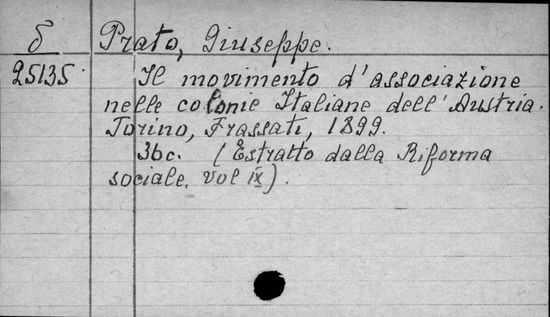 δ Prato, Giuseppe.
25135 Il movimento d'associazione
nelle colonie Italiane dell'Austria.
Torino, Frassati, 1899.
36c. (Estratto dalla Riforma
sociale. vol IX).